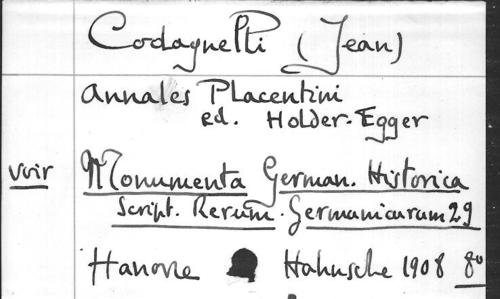 Codagnelli (Jean)
Annales Placentini
ed. Holder-Egger
voir Monumenta German. Historica
Script. Rerum. Germanicarum 29
Hanovre Hahnsche 1908 8º